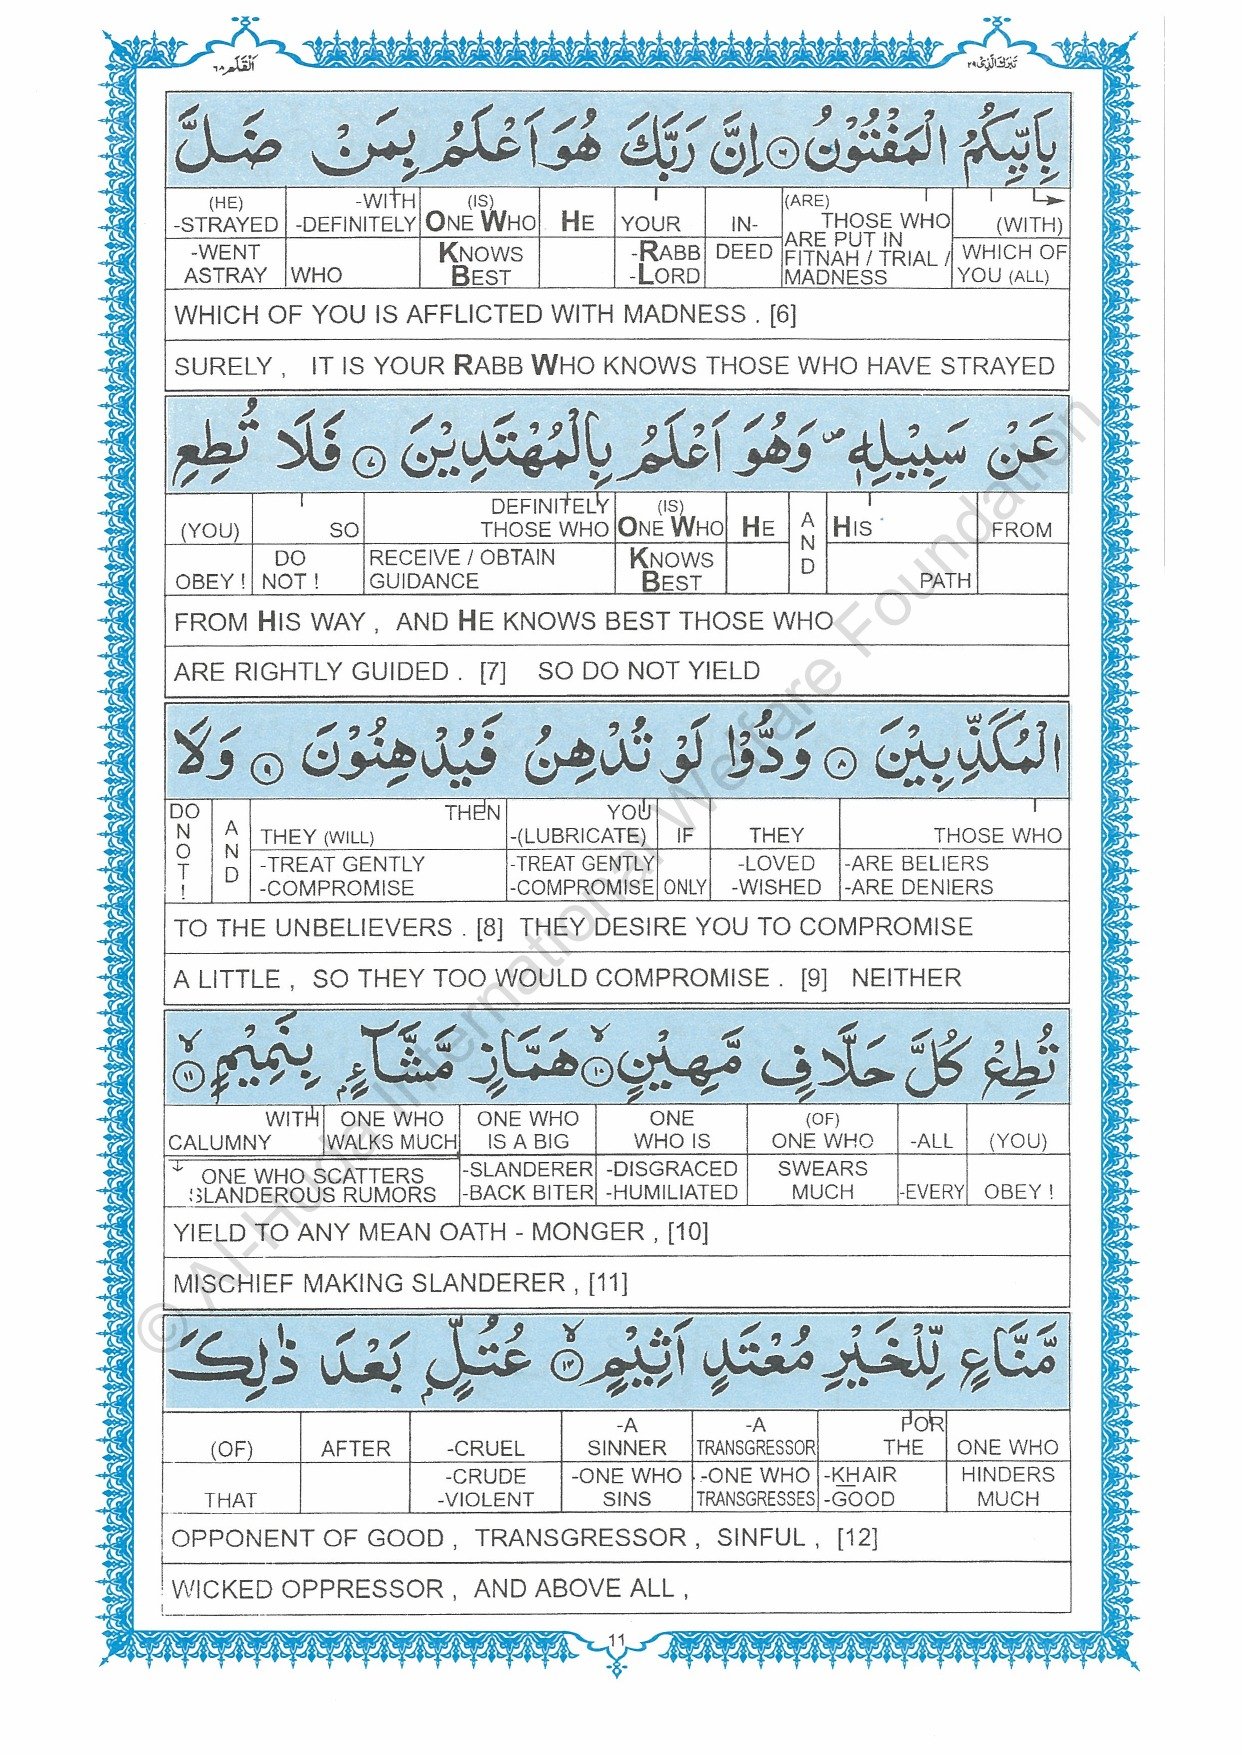 اَلْقَلَم ٦٨
تَبٰرَكَ الَّذِىْ ٢٩
بِاَيِّىكُمُ الْمَفْتُوْنُ ٦ اِنَّ رَبَّكَ هُوَ اَعْلَمُ بِمَنْ ضَلَّ
(HE) -WITH (IS) (ARE)
-STRAYED -DEFINITELY ONE WHO HE YOUR IN- THOSE WHO (WITH)
-WENT KNOWS -RABB DEED ARE PUT IN WHICH OF
ASTRAY WHO BEST -LORD FITNAH / TRIAL / YOU (ALL)
MADNESS
WHICH OF YOU IS AFFLICTED WITH MADNESS . [6]
SURELY , IT IS YOUR RABB WHO KNOWS THOSE WHO HAVE STRAYED
عَنْ سَبِيْلِهٖ ۪ وَهُوَ اَعْلَمُ بِالْمُهْتَدِيْنَ ٧ فَلَا تُطِعِ
DEFINITELY (IS) A
(YOU) SO THOSE WHO ONE WHO HE N HIS FROM
DO RECEIVE / OBTAIN KNOWS D
OBEY ! NOT ! GUIDANCE BEST PATH
FROM HIS WAY , AND HE KNOWS BEST THOSE WHO
ARE RIGHTLY GUIDED . [7] SO DO NOT YIELD
الْمُكَذِّبِيْنَ ٨ وَدُّوْا لَوْ تُدْهِنُ فَيُدْهِنُوْنَ ٩ وَلَا
DO THEN YOU
N A THEY (WILL) -(LUBRICATE) IF THEY THOSE WHO
O N -TREAT GENTLY -TREAT GENTLY -LOVED -ARE BELIERS
T D -COMPROMISE -COMPROMISE ONLY -WISHED -ARE DENIERS
!
TO THE UNBELIEVERS . [8] THEY DESIRE YOU TO COMPROMISE
A LITTLE , SO THEY TOO WOULD COMPROMISE . [9] NEITHER
تُطِعْ كُلَّ حَلَّافٍ مَّهِيْنٍ ١٠ هَمَّازٍ مَّشَّآءٍۭ بِنَمِيْمٍ ١١
WITH ONE WHO ONE WHO ONE (OF)
CALUMNY WALKS MUCH IS A BIG WHO IS ONE WHO -ALL (YOU)
ONE WHO SCATTERS -SLANDERER -DISGRACED SWEARS
SLANDEROUS RUMORS -BACK BITER -HUMILIATED MUCH -EVERY OBEY !
YIELD TO ANY MEAN OATH - MONGER , [10]
MISCHIEF MAKING SLANDERER , [11]
مَّنَّاعٍ لِّلْخَيْرِ مُعْتَدٍ اَثِيْمٍ ١٢ عُتُلٍّۭ بَعْدَ ذٰلِكَ
-A -A FOR
(OF) AFTER -CRUEL SINNER TRANSGRESSOR THE ONE WHO
-CRUDE -ONE WHO -ONE WHO -KHAIR HINDERS
THAT -VIOLENT SINS TRANSGRESSES -GOOD MUCH
OPPONENT OF GOOD , TRANSGRESSOR , SINFUL , [12]
WICKED OPPRESSOR , AND ABOVE ALL ,
11
© Al-Huda International Welfare Foundation